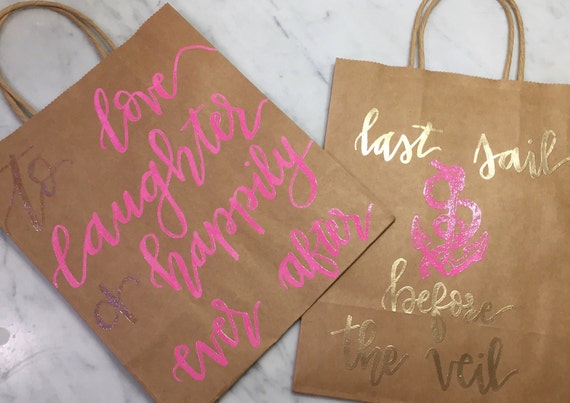 to love
laughter
& happily
ever after
last sail
before
the veil